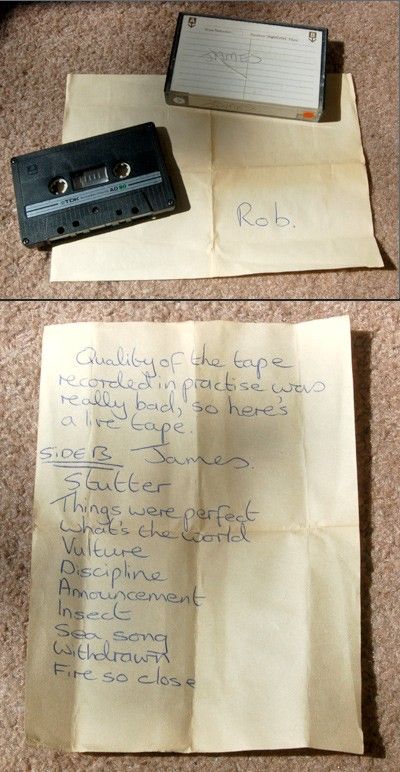 JAMES
JAMES
TDK
AD 90
Rob.
Quality of the tape
recorded in practise was
really bad, so here's
a live tape.
SIDE B James.
Stutter
Things were perfect
what's the world
Vulture
Discipline
Announcement
Insect
Sea song
Withdrawn
Fire so close